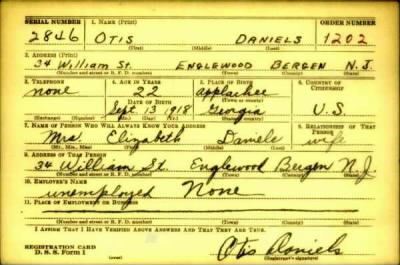 SERIAL NUMBER 1. NAME (Print) ORDER NUMBER
2846 OTIS DANIELS 1202
(First) (Middle) (Last)
2. ADDRESS (Print)
34 William St. ENGLEWOOD BERGEN N.J.
(Number and street or R. F. D. number) (Town) (County) (State)
3. TELEPHONE 4. AGE IN YEARS 5. PLACE OF BIRTH 6. COUNTRY OF CITIZENSHIP
none 22 applachee
DATE OF BIRTH (Town or county)
Sept 13 1918 Georgia U.S.
(Exchange) (Number) (Mo.) (Day) (Yr.) (State or country)
7. NAME OF PERSON WHO WILL ALWAYS KNOW YOUR ADDRESS 8. RELATIONSHIP OF THAT PERSON
Mrs. Elizabeth Daniels wife
(Mr., Mrs., Miss) (First) (Middle) (Last)
9. ADDRESS OF THAT PERSON
34 William St. Englewood Bergen N.J.
(Number and street or R. F. D. number) (Town) (County) (State)
10. EMPLOYER'S NAME
unemployed None
11. PLACE OF EMPLOYMENT OR BUSINESS
(Number and street or R. F. D. number) (Town) (County) (State)
I AFFIRM THAT I HAVE VERIFIED ABOVE ANSWERS AND THAT THEY ARE TRUE.
REGISTRATION CARD
D. S. S. Form 1 Otis Daniels
(Registrant's signature)